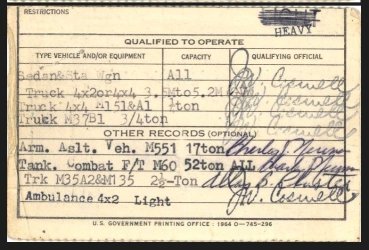 RESTRICTIONS
HEAVY
QUALIFIED TO OPERATE
TYPE VEHICLE AND/OR EQUIPMENT CAPACITY QUALIFYING OFFICIAL
Sedan&Sta Wgn All J.W. Coswell
Truck 4x2or4x4 3.5Mto5.2M J.W. Coswell
Truck 4x4 M151&A1 ¼ton J.W. Coswell
Truck M37B1 3/4ton J.W. Coswell
OTHER RECORDS (OPTIONAL)
Arm. Aslt. Veh. M551 17ton Charles J.
Tank. Combat F/T M60 52ton ALL Charles J.
Trk M35A2&M135 2½-Ton Allan B.
Ambulance 4x2 Light J.W. Coswell
U. S. GOVERNMENT PRINTING OFFICE : 1964 O-745-296